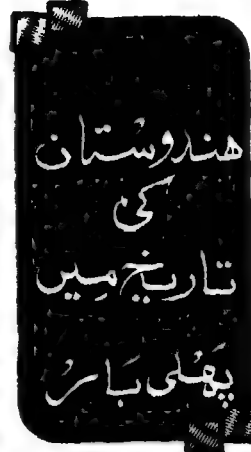 ھندوستان
کی
تاریخ میں
پہلی بار